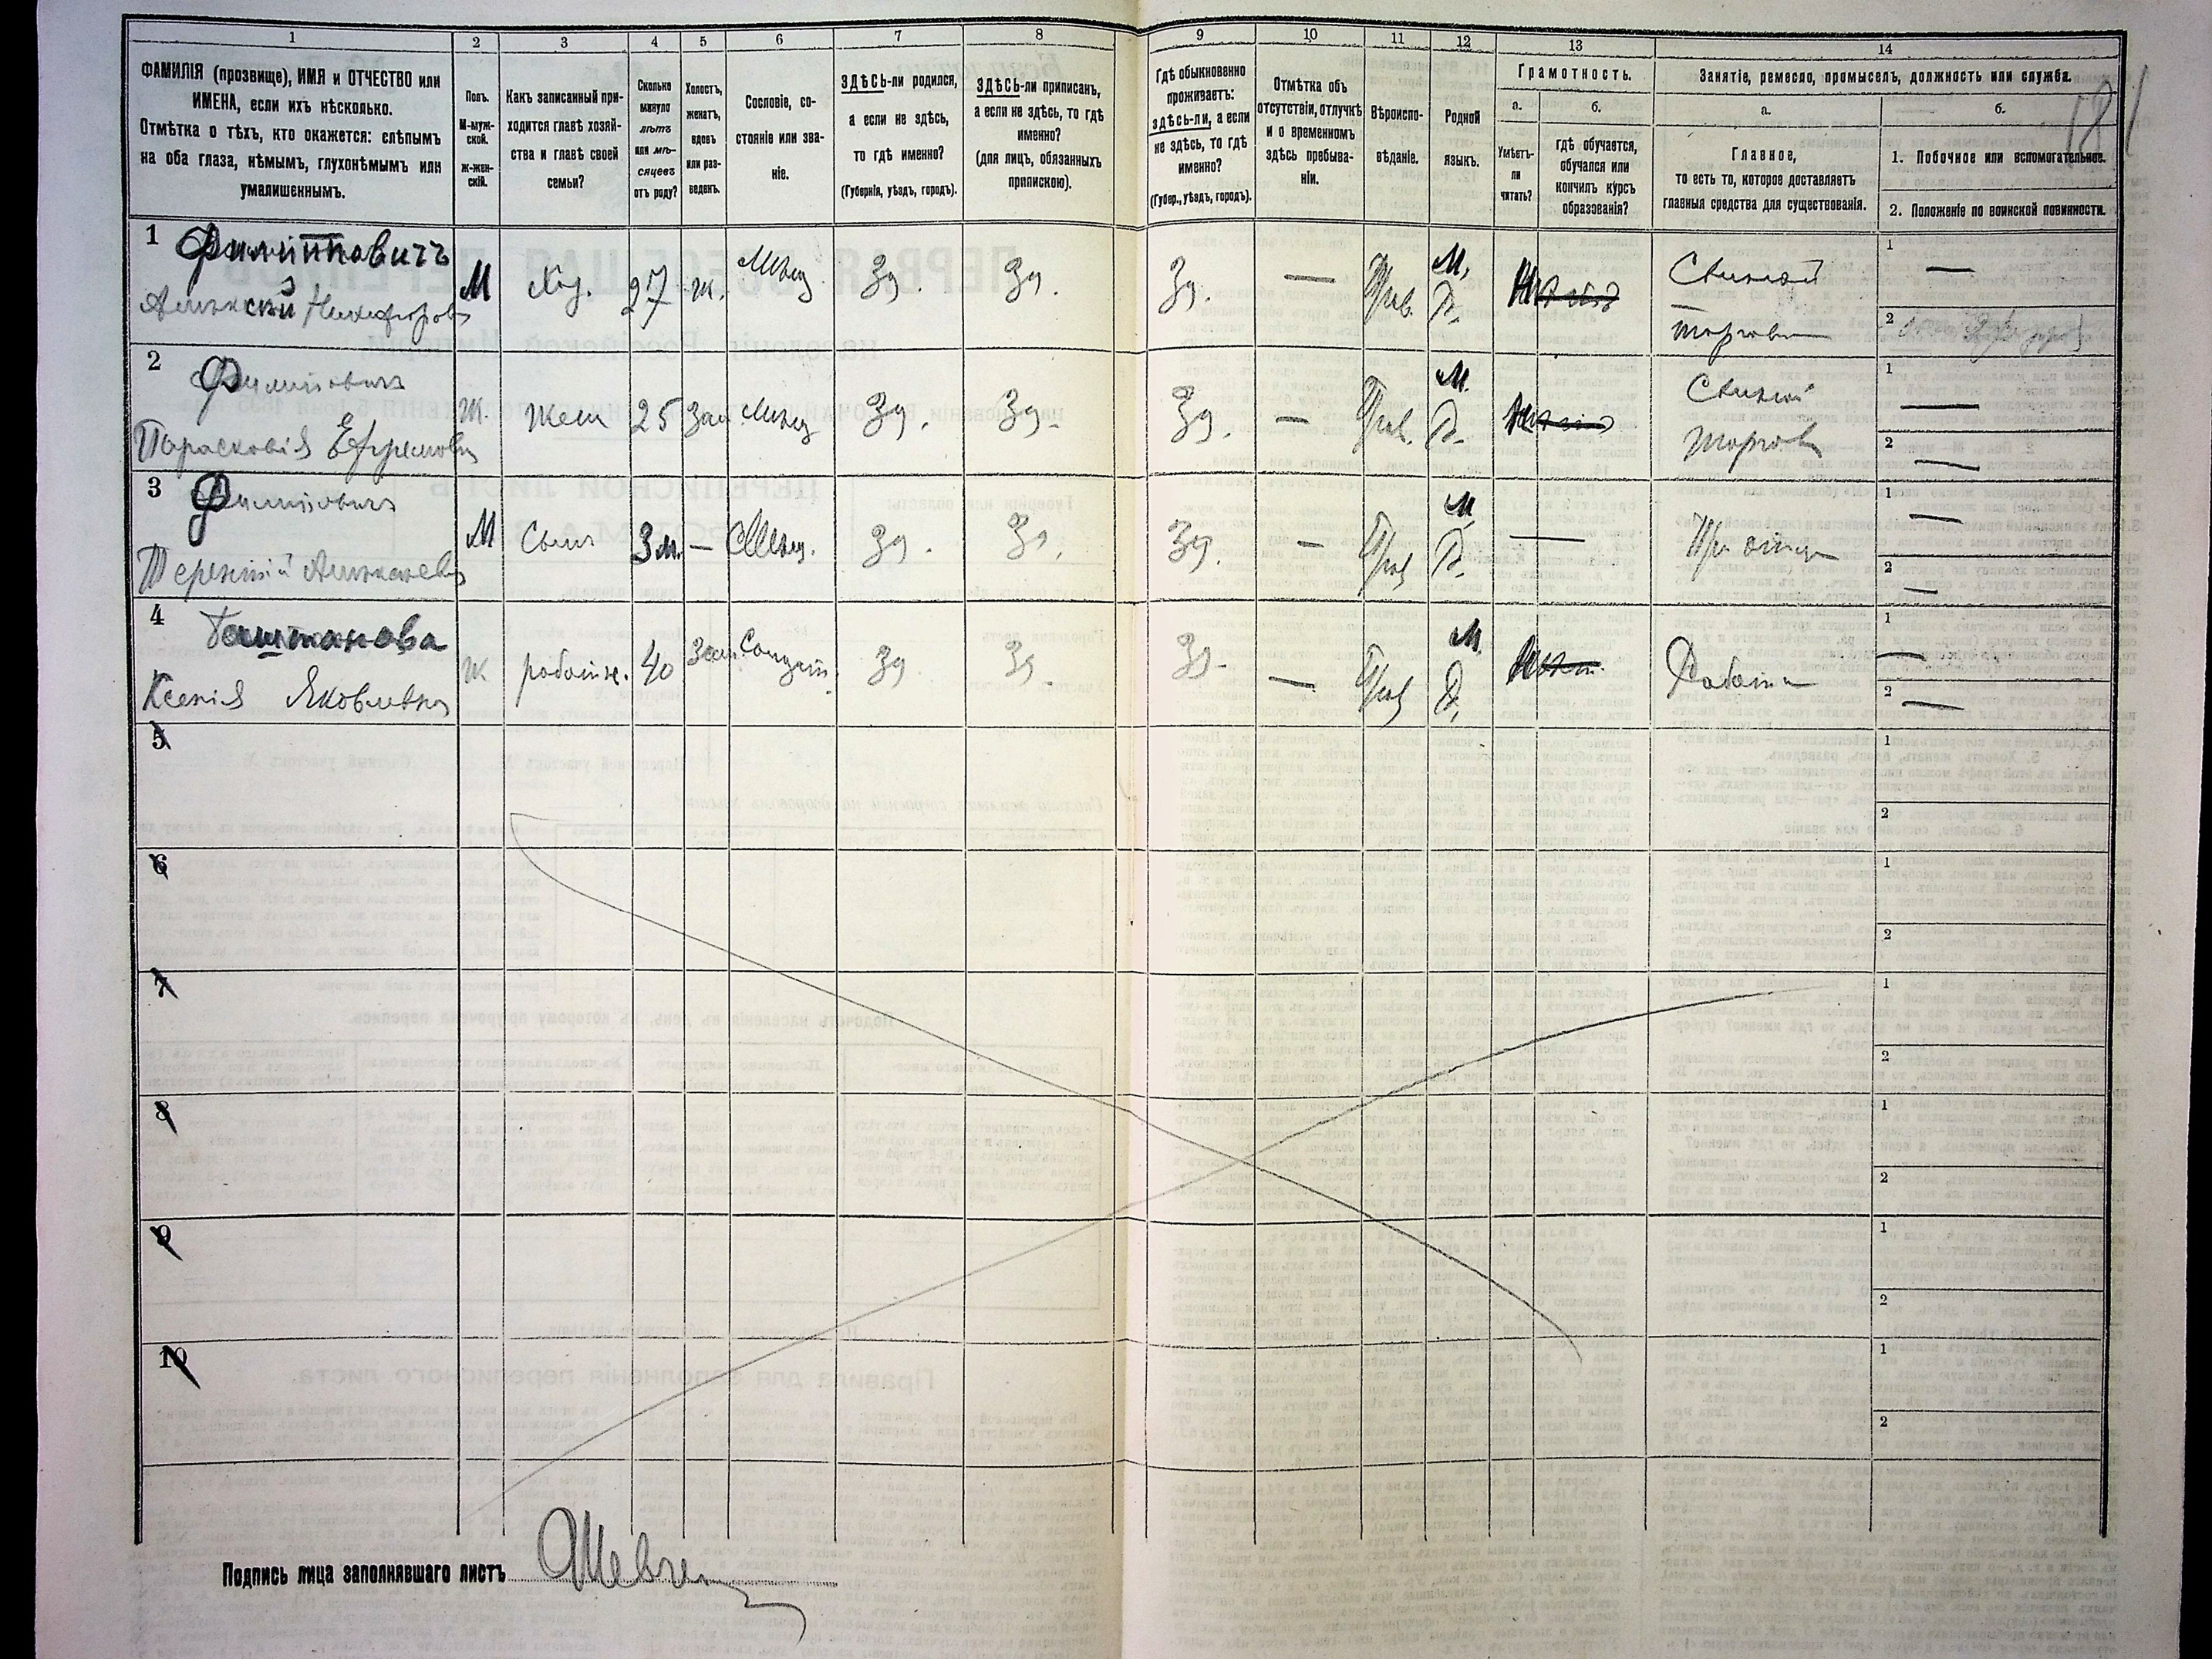 1 2 3 4 5 6 7 8 9 10 11 12 13 14
ФАМИЛІЯ (прозвище), ИМЯ и ОТЧЕСТВО или
ИМЕНА, если ихъ нѣсколько.
Отмѣтка о тѣхъ, кто окажется: слѣпымъ
на оба глаза, нѣмымъ, глухонѣмымъ или
умалишеннымъ.
Полъ.
М-муж-
ской.
ж-жен-
скій.
Какъ записанный при-
ходится главѣ хозяй-
ства и главѣ своей
семьи?
Сколько
минуло
лѣтъ
или мѣ-
сяцевъ
отъ роду?
Холостъ,
женатъ,
вдовъ
или раз-
веденъ.
Сословіе, со-
стояніе или зва-
ніе.
ЗДѢСЬ-ли родился,
а если не здѣсь,
то гдѣ именно?
(Губернія, уѣздъ, городъ).
ЗДѢСЬ-ли приписанъ,
а если не здѣсь, то гдѣ
именно?
(для лицъ, обязанныхъ
припискою).
Гдѣ обыкновенно
проживаетъ:
здѣсь-ли, а если
не здѣсь, то гдѣ
именно?
(Губер., уѣздъ, городъ).
Отмѣтка объ
отсутствіи, отлучкѣ
и о временномъ
здѣсь пребыва-
ніи.
Вѣроиспо-
вѣданіе.
Родной
языкъ.
Грамотность.
а.
Умѣетъ-
ли
читать?
б.
гдѣ обучается,
обучался или
кончилъ курсъ
образованія?
Занятіе, ремесло, промыселъ, должность или служба.
а.
Главное,
то есть то, которое доставляетъ
главныя средства для существованія.
б.
1. Побочное или вспомогательное.
2. Положеніе по воинской повинности.
181
1 Филипповичъ
М 27 ж. Зд. Зд. Зд. — М. 1 —
2
2 Филиповичъ
Парасковія Ефремовна
Ж. жена 25 Зам Зд. Зд. Зд. — М. 1 —
2 —
3 Филиповичъ
М Сынъ 3 м. — Зд. Зд. Зд. — М — При отцѣ 1 —
2 —
4 Баштанова
Ксенія Яковлевна
Ж работн. 40 Зам. Зд. Зд. Зд. — М. 1 —
2 —
5 1
2
6 1
2
7 1
2
8 1
2
9 1
2
10 1
2
Подпись лица заполнявшаго листъ